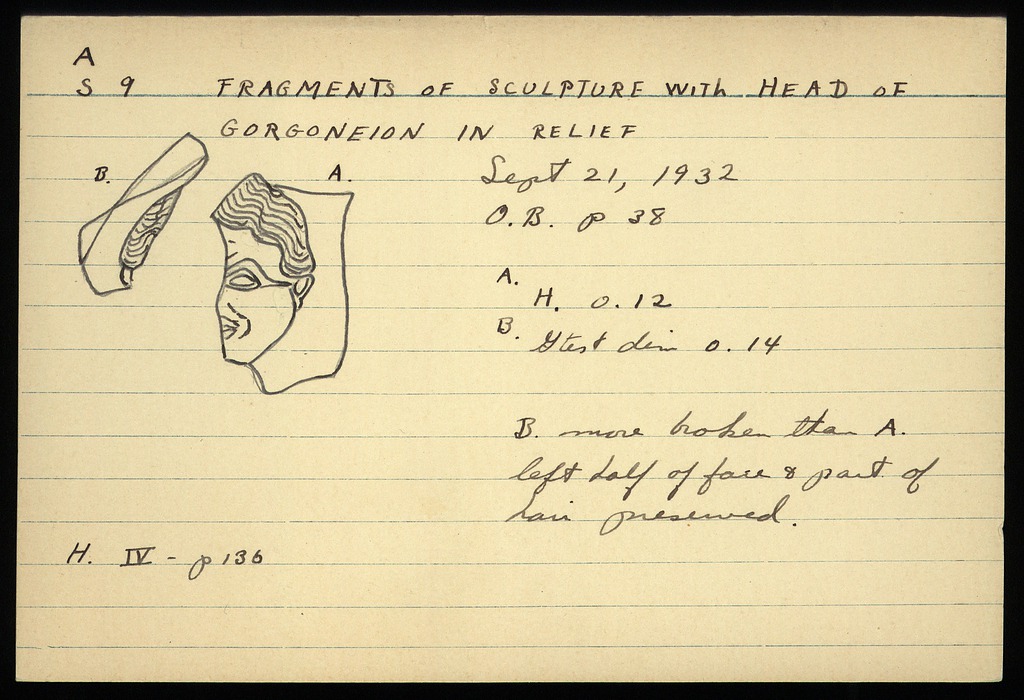 A
S 9 FRAGMENTS OF SCULPTURE WITH HEAD OF
GORGONEION IN RELIEF
B. A.
Sept 21, 1932
O.B. p 38
A.
H. 0.12
B.
Gtest dim 0.14
B. more broken than A.
left half of face & part of
hair preserved.
H. IV - p 136